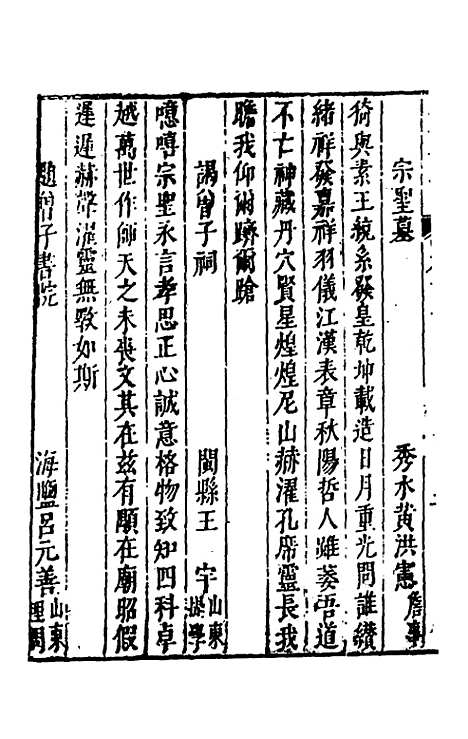 宗聖墓　秀水黃洪憲詹事
猗與素王統系發皇乾坤載造日月重光問誰纘
緒祥發嘉祥羽儀江漢表章秋陽哲人雖萎吾道
不亡神藏丹穴賢星煌煌尼山赫濯孔席靈長我
瞻我仰爾躋爾蹌
謁曾子祠　閩縣王　宇山東提學
噫嘻宗聖永言孝思正心誠意格物致知四科卓
越萬世作師天之未喪文其在茲有顒在廟昭假
遲遲赫聲濯靈無斁如斯
題曾子書院　海鹽呂元善山東理問